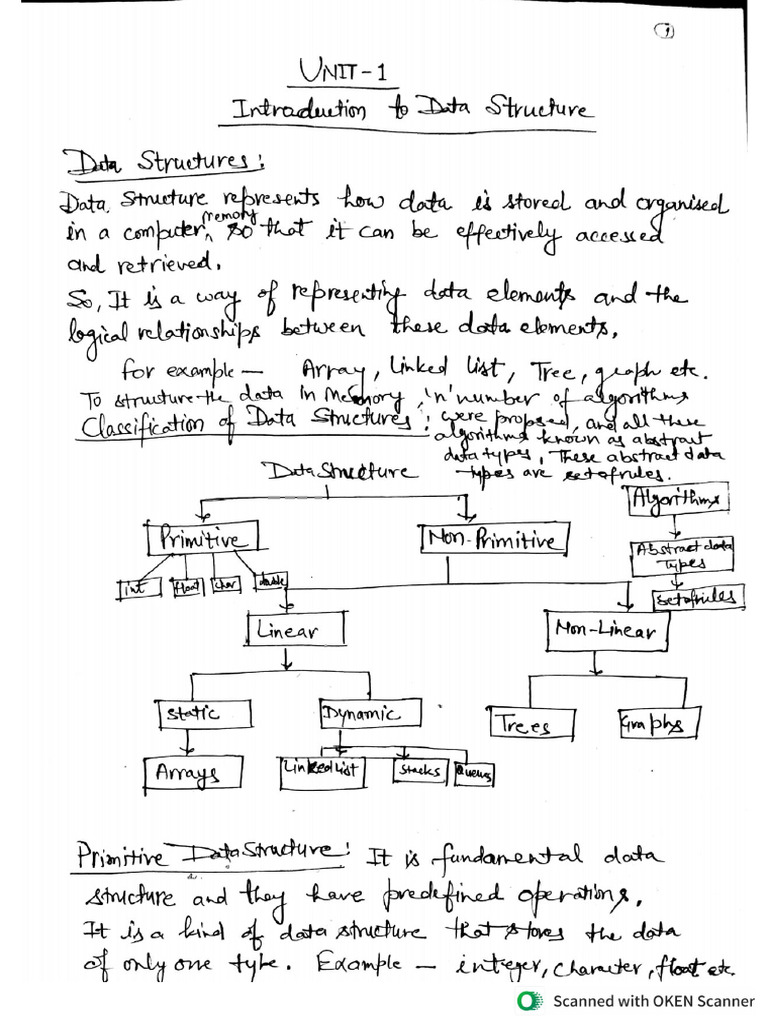 1
UNIT-1
Introduction to Data Structure
Data Structures:
Data Structure represents how data is stored and organised
in a computer memory so that it can be effectively accessed
and retrieved.
So, It is a way of representing data elements and the
logical relationships between these data elements,
for example - Array, Linked list, Tree, graph etc.
To structure the data in Memory, 'n' number of algorithms
were proposed, and all these
Classification of Data Structures:
algorithms known as abstract
data types, These abstract data
types are set of rules.
Data Structure
Algorithms
Primitive
Non-Primitive
Abstract data
Types
int
float
char
double
set of rules
Linear
Non-Linear
Static
Dynamic
Trees
Graphs
Arrays
Linked List
Stacks
Queues
Primitive Data Structure: It is fundamental data
structure and they have predefined operations.
It is a kind of data structure that stores the data
of only one type. Example - integer, character, float etc.
Scanned with OKEN Scanner